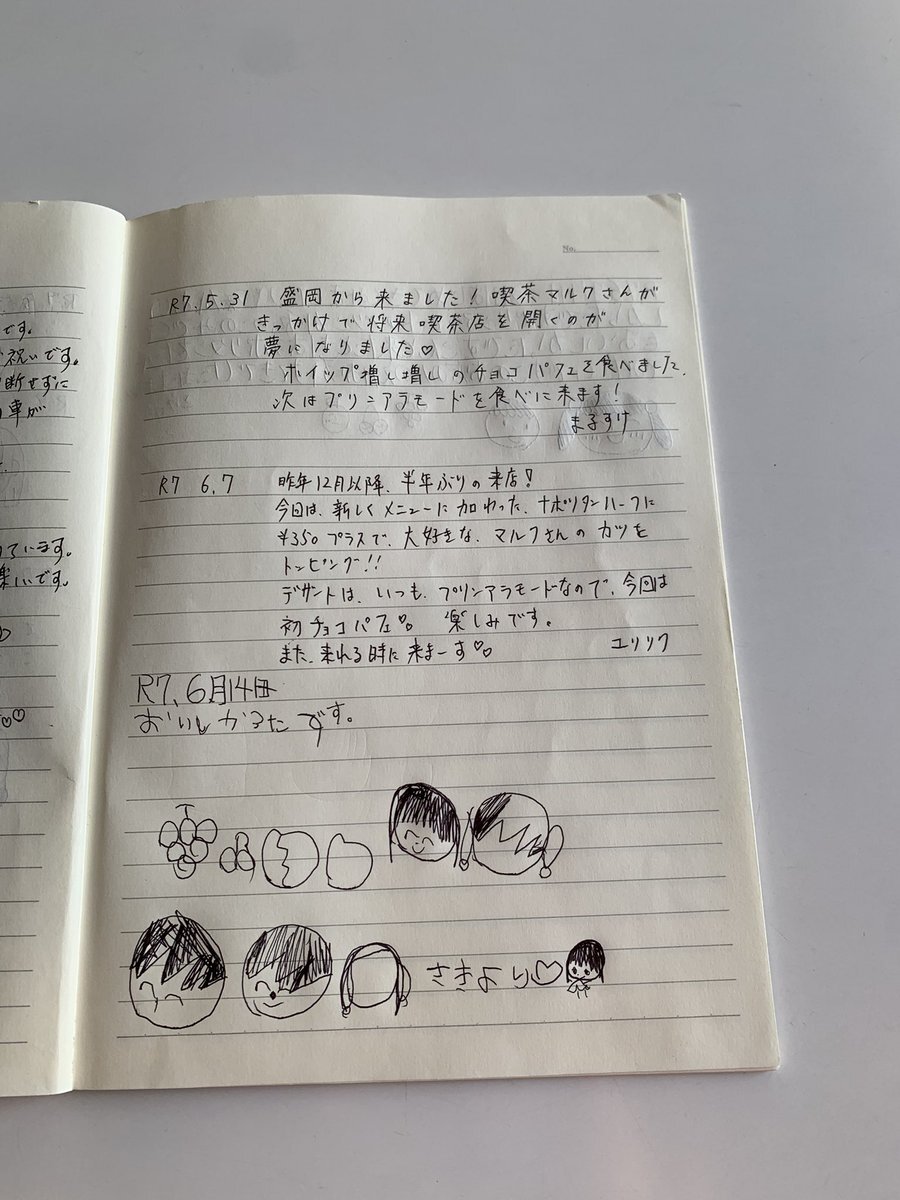 です。
祝いです。
断せずに
車が
ています。
楽しいです。
No.
R7.5.31 盛岡から来ました!喫茶マルクさんが
きっかけで将来喫茶店を開くのが
夢になりました♡
ホイップ増し増しのチョコパフェを食べました。
次はプリンアラモードを食べに来ます!
まるすけ
R7 6.7 昨年12月以降、半年ぶりの来店!
今回は、新しくメニューに加わった、ナポリタンハーフに
¥350プラスで、大好きな、マルクさんのカツを
トッピング!!
デザートは、いつも、プリンアラモードなので、今回は
初チョコパフェ♡。楽しみです。
また、来れる時に来まーす♡♡ ユリリク
R7.6月14日
おいしかるたです。
さきより♡